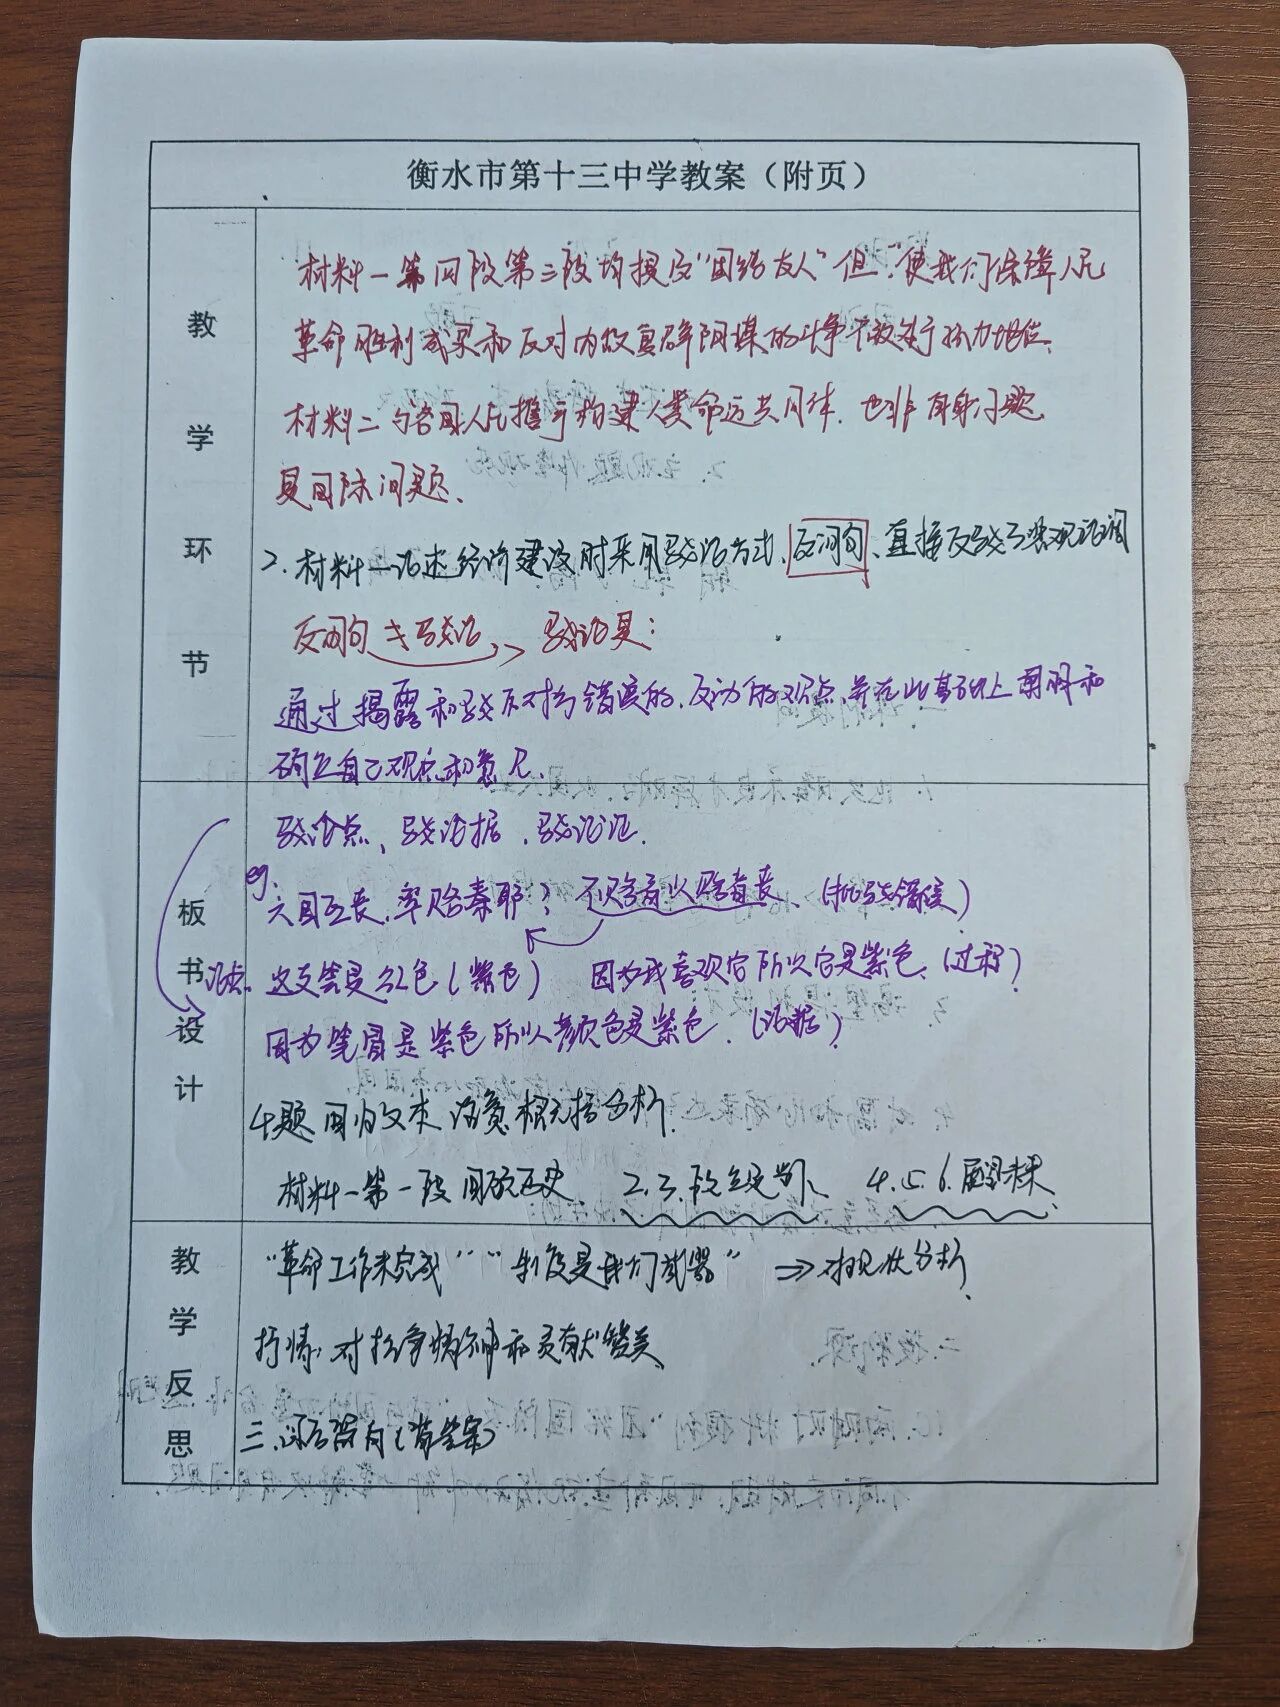 衡水市第十三中学教案（附页）
教学环节
材料一第四段第三段均提及“团结友人”但“使我们保障人民
革命胜利成果和反对内敌复辟阴谋的斗争不致处于孤力地位.
材料二与各国人民携手构建人类命运共同体. 也非自身问题
是国际问题.
2. 材料一论述经济建设时采用驳论方式、反问句、直接反驳了悲观论调
反问句 ≠ 驳论 驳论是：
通过揭露和驳反对方错误的、反动的观点、并在此基础上阐明和
确立自己观点和意见.
板书设计
驳论点、驳论据、驳论证.
eg.
六国互丧, 率赂秦耶？ 不赂者以赂者丧、(批驳错误)
论点. 这支笔是红色(紫色) 因为我喜欢它所以它是紫色.(过程)
因为笔冒是紫色所以颜色是紫色.(论据)
4题 回归文本 内分析
材料一第一段回顾历史. 2.3.段 4.5.6.展望未来.
教学反思
“革命工作未完成”“制度是我们武器” ⇒ 对现状分析.
抒情：对抗争精神和贡献赞美
三、